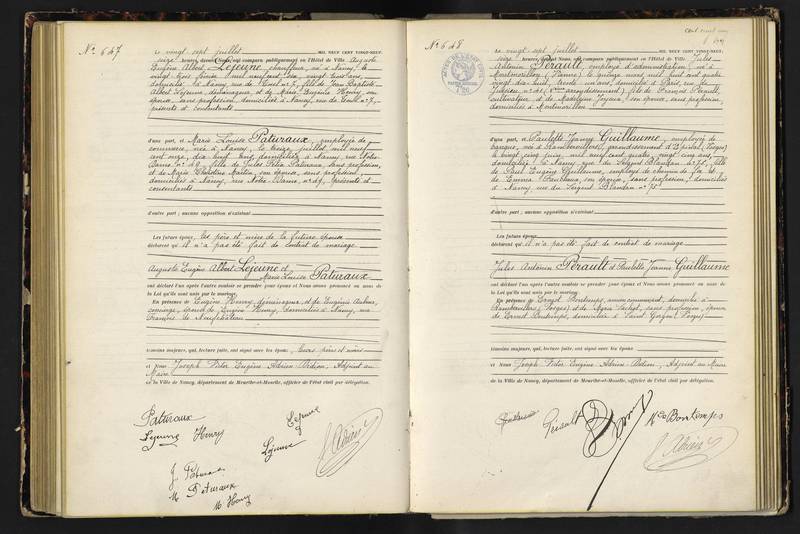 N° 647
Le vingt sept juillet MIL NEUF CENT VINGT-NEUF,
seize heures, devant Nous, ont comparu publiquement en l'Hôtel de Ville Auguste
Eugène Albert Lejeune, chauffeur, né à Nancy, le
vingt trois février mil neuf cent six, vingt trois ans,
domicilié à Nancy, rue de n° 7, fils de Jean Baptiste
Albert Lejeune, déménageur, et de Marie Eugénie Henry, son
épouse, sans profession, domiciliés à Nancy, rue de n° 7,
présents et consentants
d'une part, et Marie Louise Paturaux, employée de
commerce, née à Nancy, le treize juillet mil neuf
cent onze, dix huit ans, domiciliée à Nancy, rue Notre-
Dame n° 47, fille de Jules Paturaux, sans profession,
et de Marie Christine Martin, son épouse, sans profession,
domiciliés à Nancy, rue Notre Dame n° 47, présents et
consentants
d'autre part ; aucune opposition n'existant
Les futurs époux, les père et mère de la future épouse
déclarent qu'il n'a pas été fait de contrat de mariage
Auguste Eugène Albert Lejeune et
Marie Louise Paturaux
ont déclaré l'un après l'autre vouloir se prendre pour époux et Nous avons prononcé au nom de
la Loi qu'ils sont unis par le mariage.
En présence de Eugène Henry, déménageur, et de Eugénie
Eugène Henry, domiciliés à Nancy, rue
François de Neufchâteau
témoins majeurs, qui, lecture faite, ont signé avec les époux, leurs pères et mères
et Nous Joseph Victor Eugène Adrien Didion, Adjoint au
Maire
de la Ville de Nancy, département de Meurthe-et-Moselle, officier de l'état civil par délégation.
Paturaux
Lejeune Henry
Lejeune
Lejeune
J. Paturaux
M Paturaux
M Henry
N° 648
Le vingt sept juillet MIL NEUF CENT VINGT-NEUF,
seize heures, devant Nous, ont comparu publiquement en l'Hôtel de Ville Jules
Antonin Pérault, employé d'administration, né à
Montmorillon (Vienne) le quinze mars mil huit cent quatre
vingt dix huit, trente un ans, domicilié à Paris, rue
arrondissement) fils de François Pérault,
cultivateur, et de Madeleine son épouse, sans profession,
domiciliés à Montmorillon
d'une part, et Paulette Jeanne Guillaume, employée de
banque, née à Rambervillers, (arrondissement d'Épinal, Vosges)
le vingt cinq juin, mil neuf cent quatre, vingt cinq ans,
domiciliée à Nancy, rue du Sergent Blandan n° 75, fille
de Paul Eugène Guillaume, employé de chemin de fer et
de Emma son épouse, sans profession, domiciliés
à Nancy, rue du Sergent Blandan n° 75
d'autre part ; aucune opposition n'existant
Les futurs époux
déclarent qu'il n'a pas été fait de contrat de mariage
Jules Antonin Pérault et Paulette Jeanne Guillaume
ont déclaré l'un après l'autre vouloir se prendre pour époux et Nous avons prononcé au nom de
la Loi qu'ils sont unis par le mariage.
En présence de Ernest Bontemps, domicilié à
Rambervillers (Vosges) et de Marie sans profession, épouse
de Ernest Bontemps, domiciliée à Saint Gorgon (Vosges)
témoins majeurs, qui, lecture faite, ont signé avec les époux
et Nous Joseph Victor Eugène Adrien Didion, Adjoint au Maire
de la Ville de Nancy, département de Meurthe-et-Moselle, officier de l'état civil par délégation.
Guillaume
Pérault
Bontemps